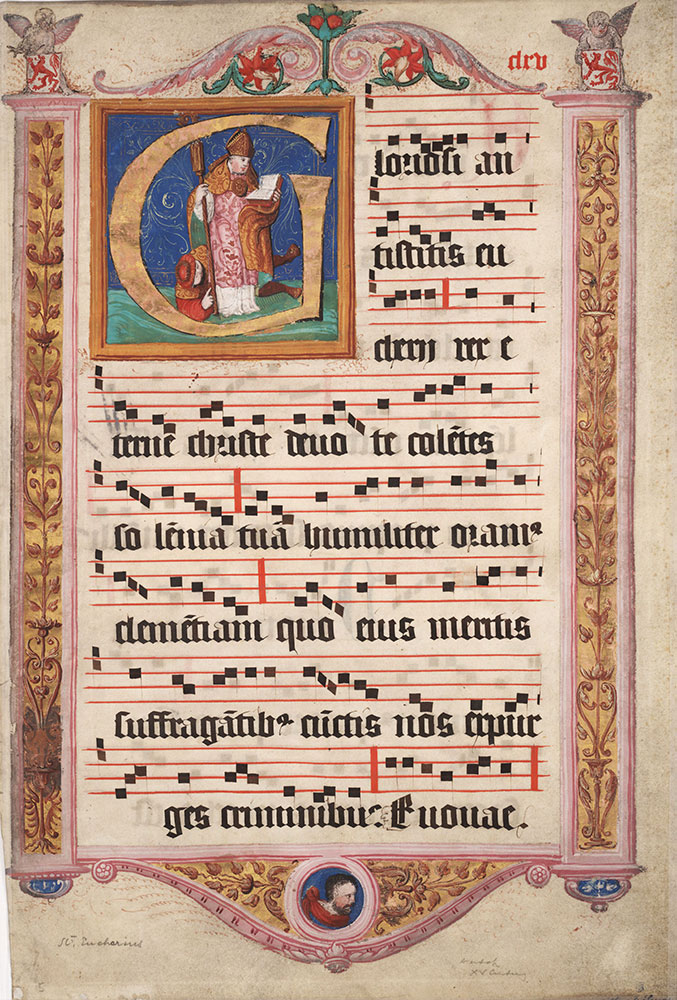 cxv
Gloriosi an
tistitis eu
charij rex e
terne christe deuo te colētes
so lēnia tuā humiliter oramꝰ
clemētiam quo eius meritis
suffragātibꝰ cūctis nos expur
ges criminibuꝰ. Euouae.
St. Eucharius